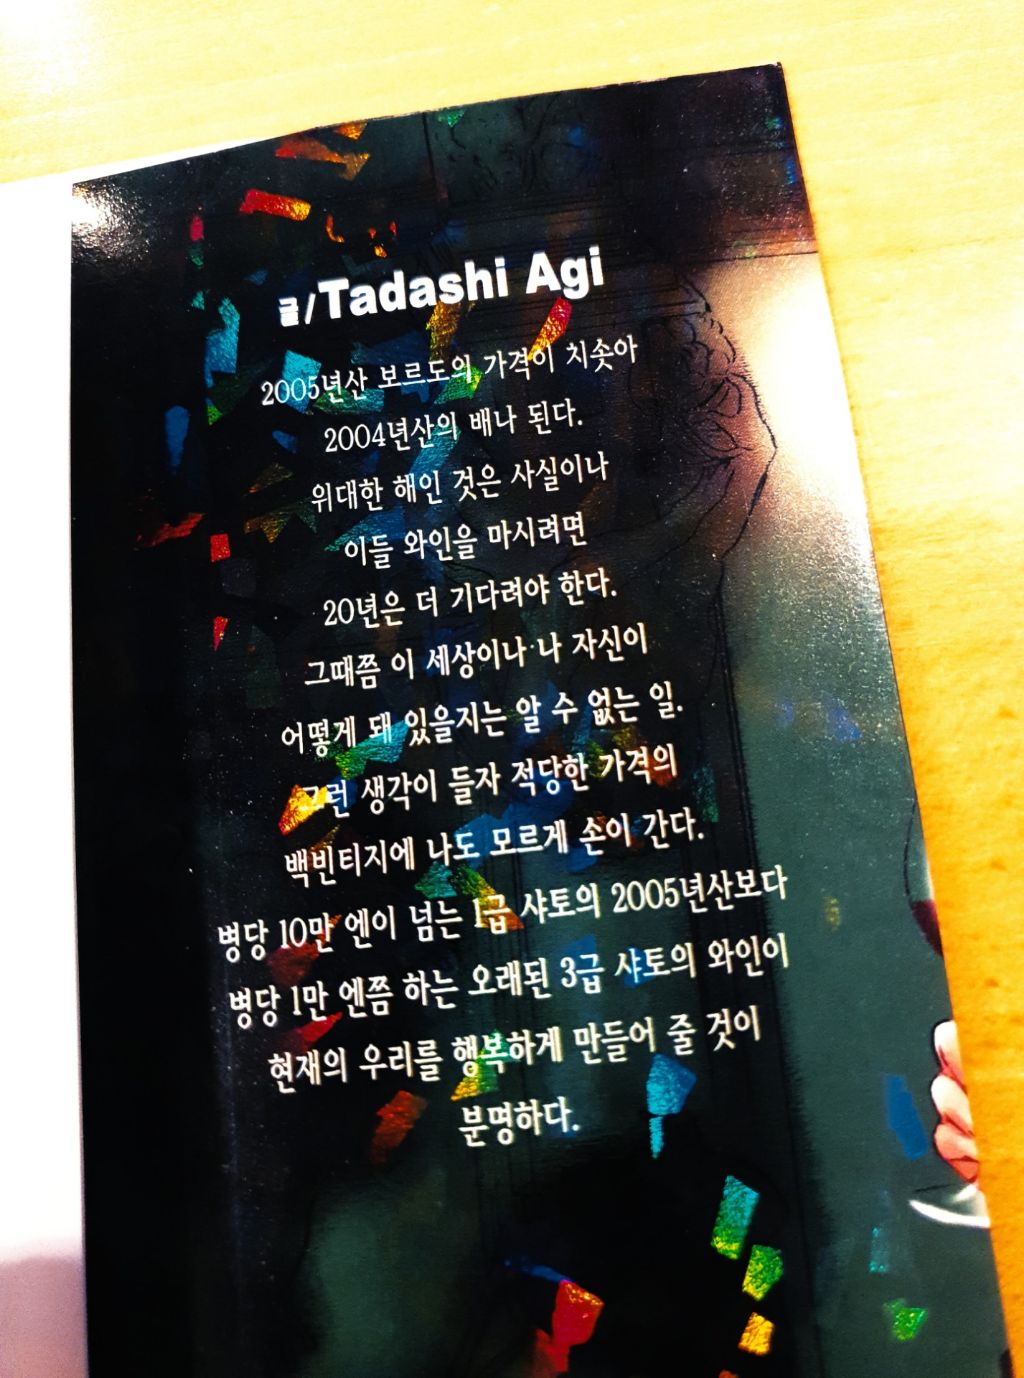 글/Tadashi Agi
2005년산 보르도의 가격이 치솟아
2004년산의 배나 된다.
위대한 해인 것은 사실이나
이들 와인을 마시려면
20년은 더 기다려야 한다.
그때쯤 이 세상이나 나 자신이
어떻게 돼 있을지는 알 수 없는 일.
그런 생각이 들자 적당한 가격의
백빈티지에 나도 모르게 손이 간다.
병당 10만 엔이 넘는 1급 샤토의 2005년산보다
병당 1만 엔쯤 하는 오래된 3급 샤토의 와인이
현재의 우리를 행복하게 만들어 줄 것이
분명하다.